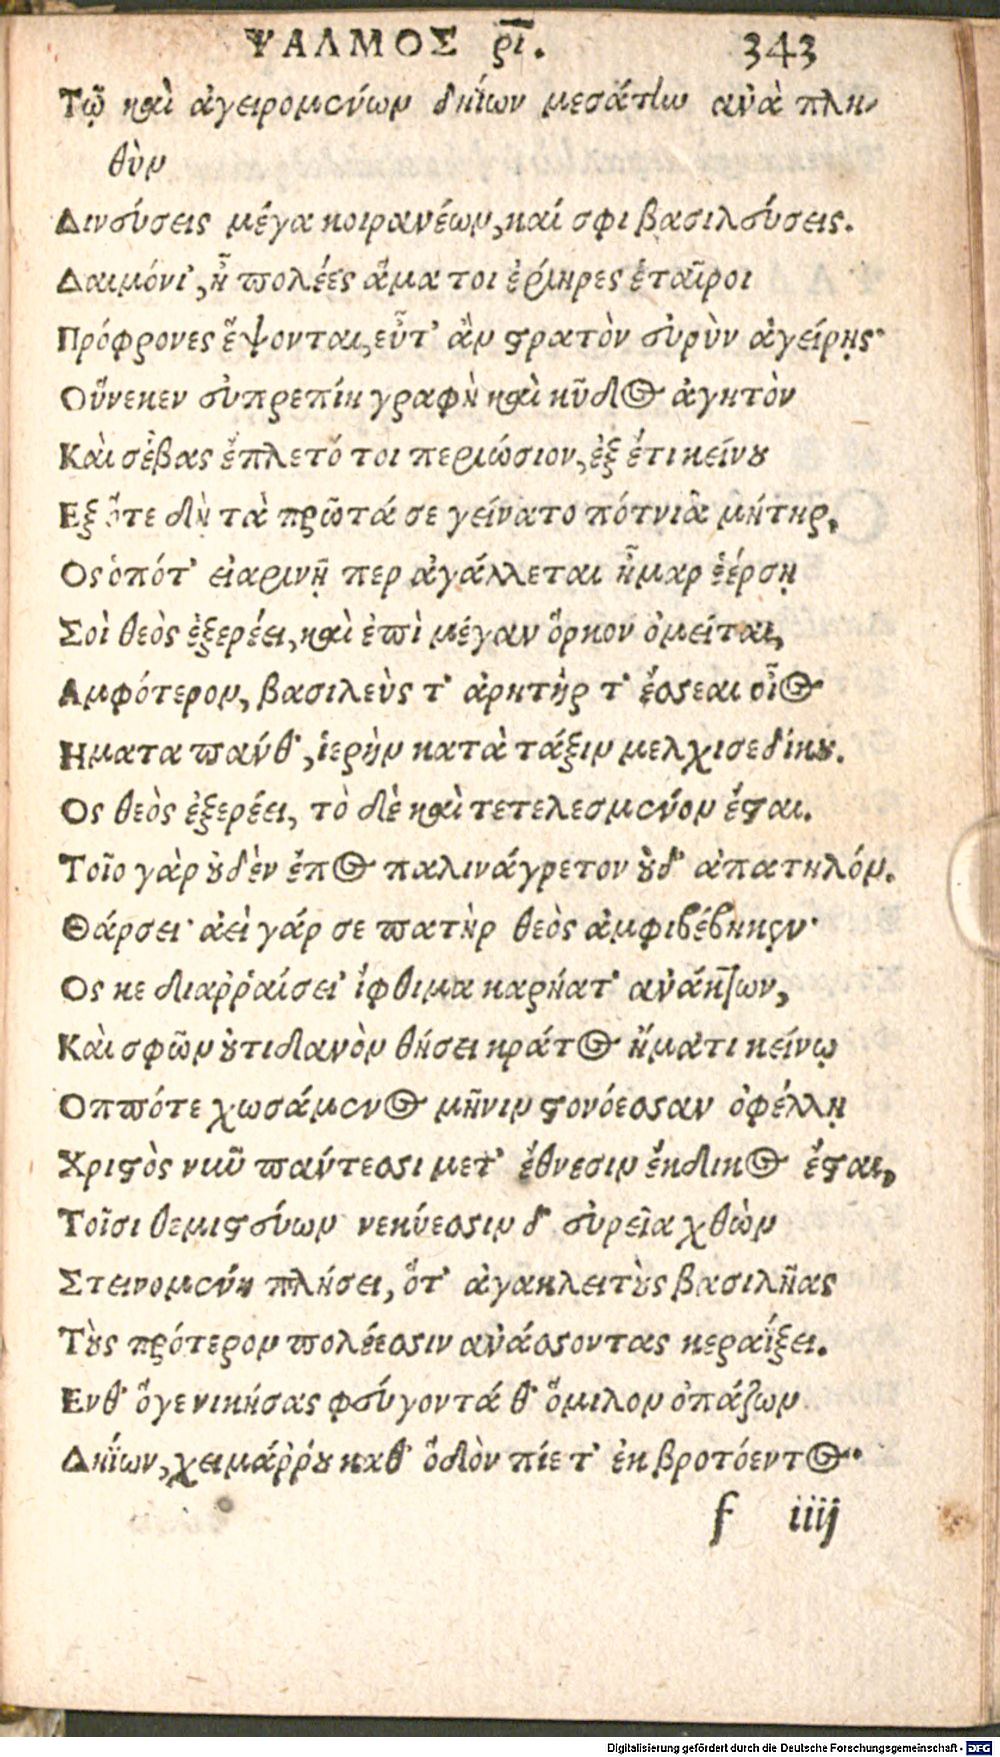 ΨΑΛΜΟΣ ρι. 343
Τῷ καὶ ἀγειρομένων δηΐων μεσάτην ἀνὰ πλη-
θὺν
Δινεύσεις μέγα κοιρανέων, καί σφι βασιλεύσεις.
Δαιμόνι', ἦ πολέες ἅμα τοι ἐρίηρες ἑταῖροι
Πρόφρονες ἕψονται, εὖτ' ἂν στρατὸν εὐρὺν ἀγείρῃς·
Οὕνεκεν εὐπρεπίη γραφὴ καὶ κῦδος ἀγητὸν
Καὶ σέβας ἔπλετό τοι περιώσιον, ἐξ ἔτι κείνου
Εξ ὅτε δὴ τὰ πρῶτά σε γείνατο πότνια μήτηρ,
Ος ὁπότ' εἰαρινῇ περ ἀγάλλεται ἦμαρ ἐέρσῃ
Σοὶ θεὸς ἐξερέει, καὶ ἐπὶ μέγαν ὅρκον ὀμεῖται,
Αμφότερον, βασιλεὺς τ' ἀρητὴρ τ' ἔσσεαι οἶος
Ηματα πάνθ', ἱερὴν κατὰ τάξιν μελχισεδίκου.
Ος θεὸς ἐξερέει, τὸ δὲ καὶ τετελεσμένον ἔσται.
Τοῖο γὰρ οὐδὲν ἔπος παλινάγρετον οὐδ' ἀπατηλόν.
Θάρσει· ἀεὶ γάρ σε πατὴρ θεὸς ἀμφιβέβηκεν·
Ος κε διαῤῥαίσει' ἴφθιμα καρήατ' ἀνάκτων,
Καὶ σφῶν οὐτιδανὸν θήσει κράτος ἤματι κείνῳ
Οππότε χωσάμενος μῆνιν στονόεσσαν ὀφέλλῃ
Χριστὸς νικῦ πάντεσσι μετ' ἔθνεσιν ἔκδικος ἔσται,
Τοῖσι θεμιστεύων νεκύεσσιν δ' εὐρεῖα χθὼν
Στεινομένη πλήσει, ὅτ' ἀγακλειτοὺς βασιλῆας
Τοὺς πρότερον πολέεσσιν ἀνάσσοντας κεραΐξει.
Ενθ' ὅγε νικήσας φεύγοντά θ' ὅμιλον ὀπάζων
Δηΐων, χειμάῤῥου καθ' ὅδὸν πίε τ' ἐκ βροτόεντος·
f iiij
Digitalisierung gefördert durch die Deutsche Forschungsgemeinschaft - DFG